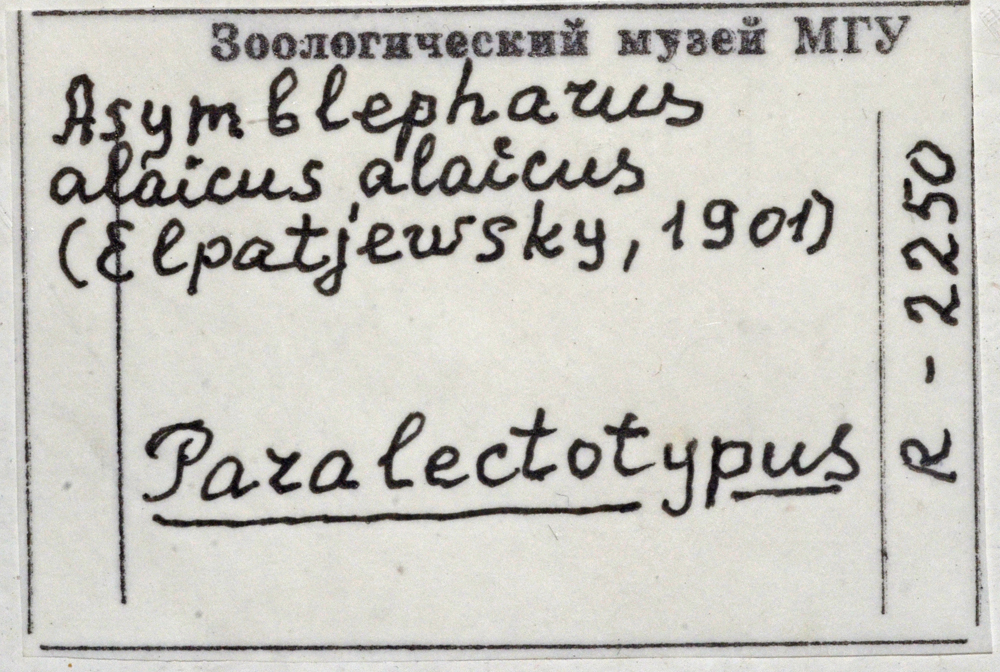 Зоологический музей МГУ
Asymblepharus
alaicus alaicus
(Elpatjewsky, 1901)
Paralectotypus
R - 2250